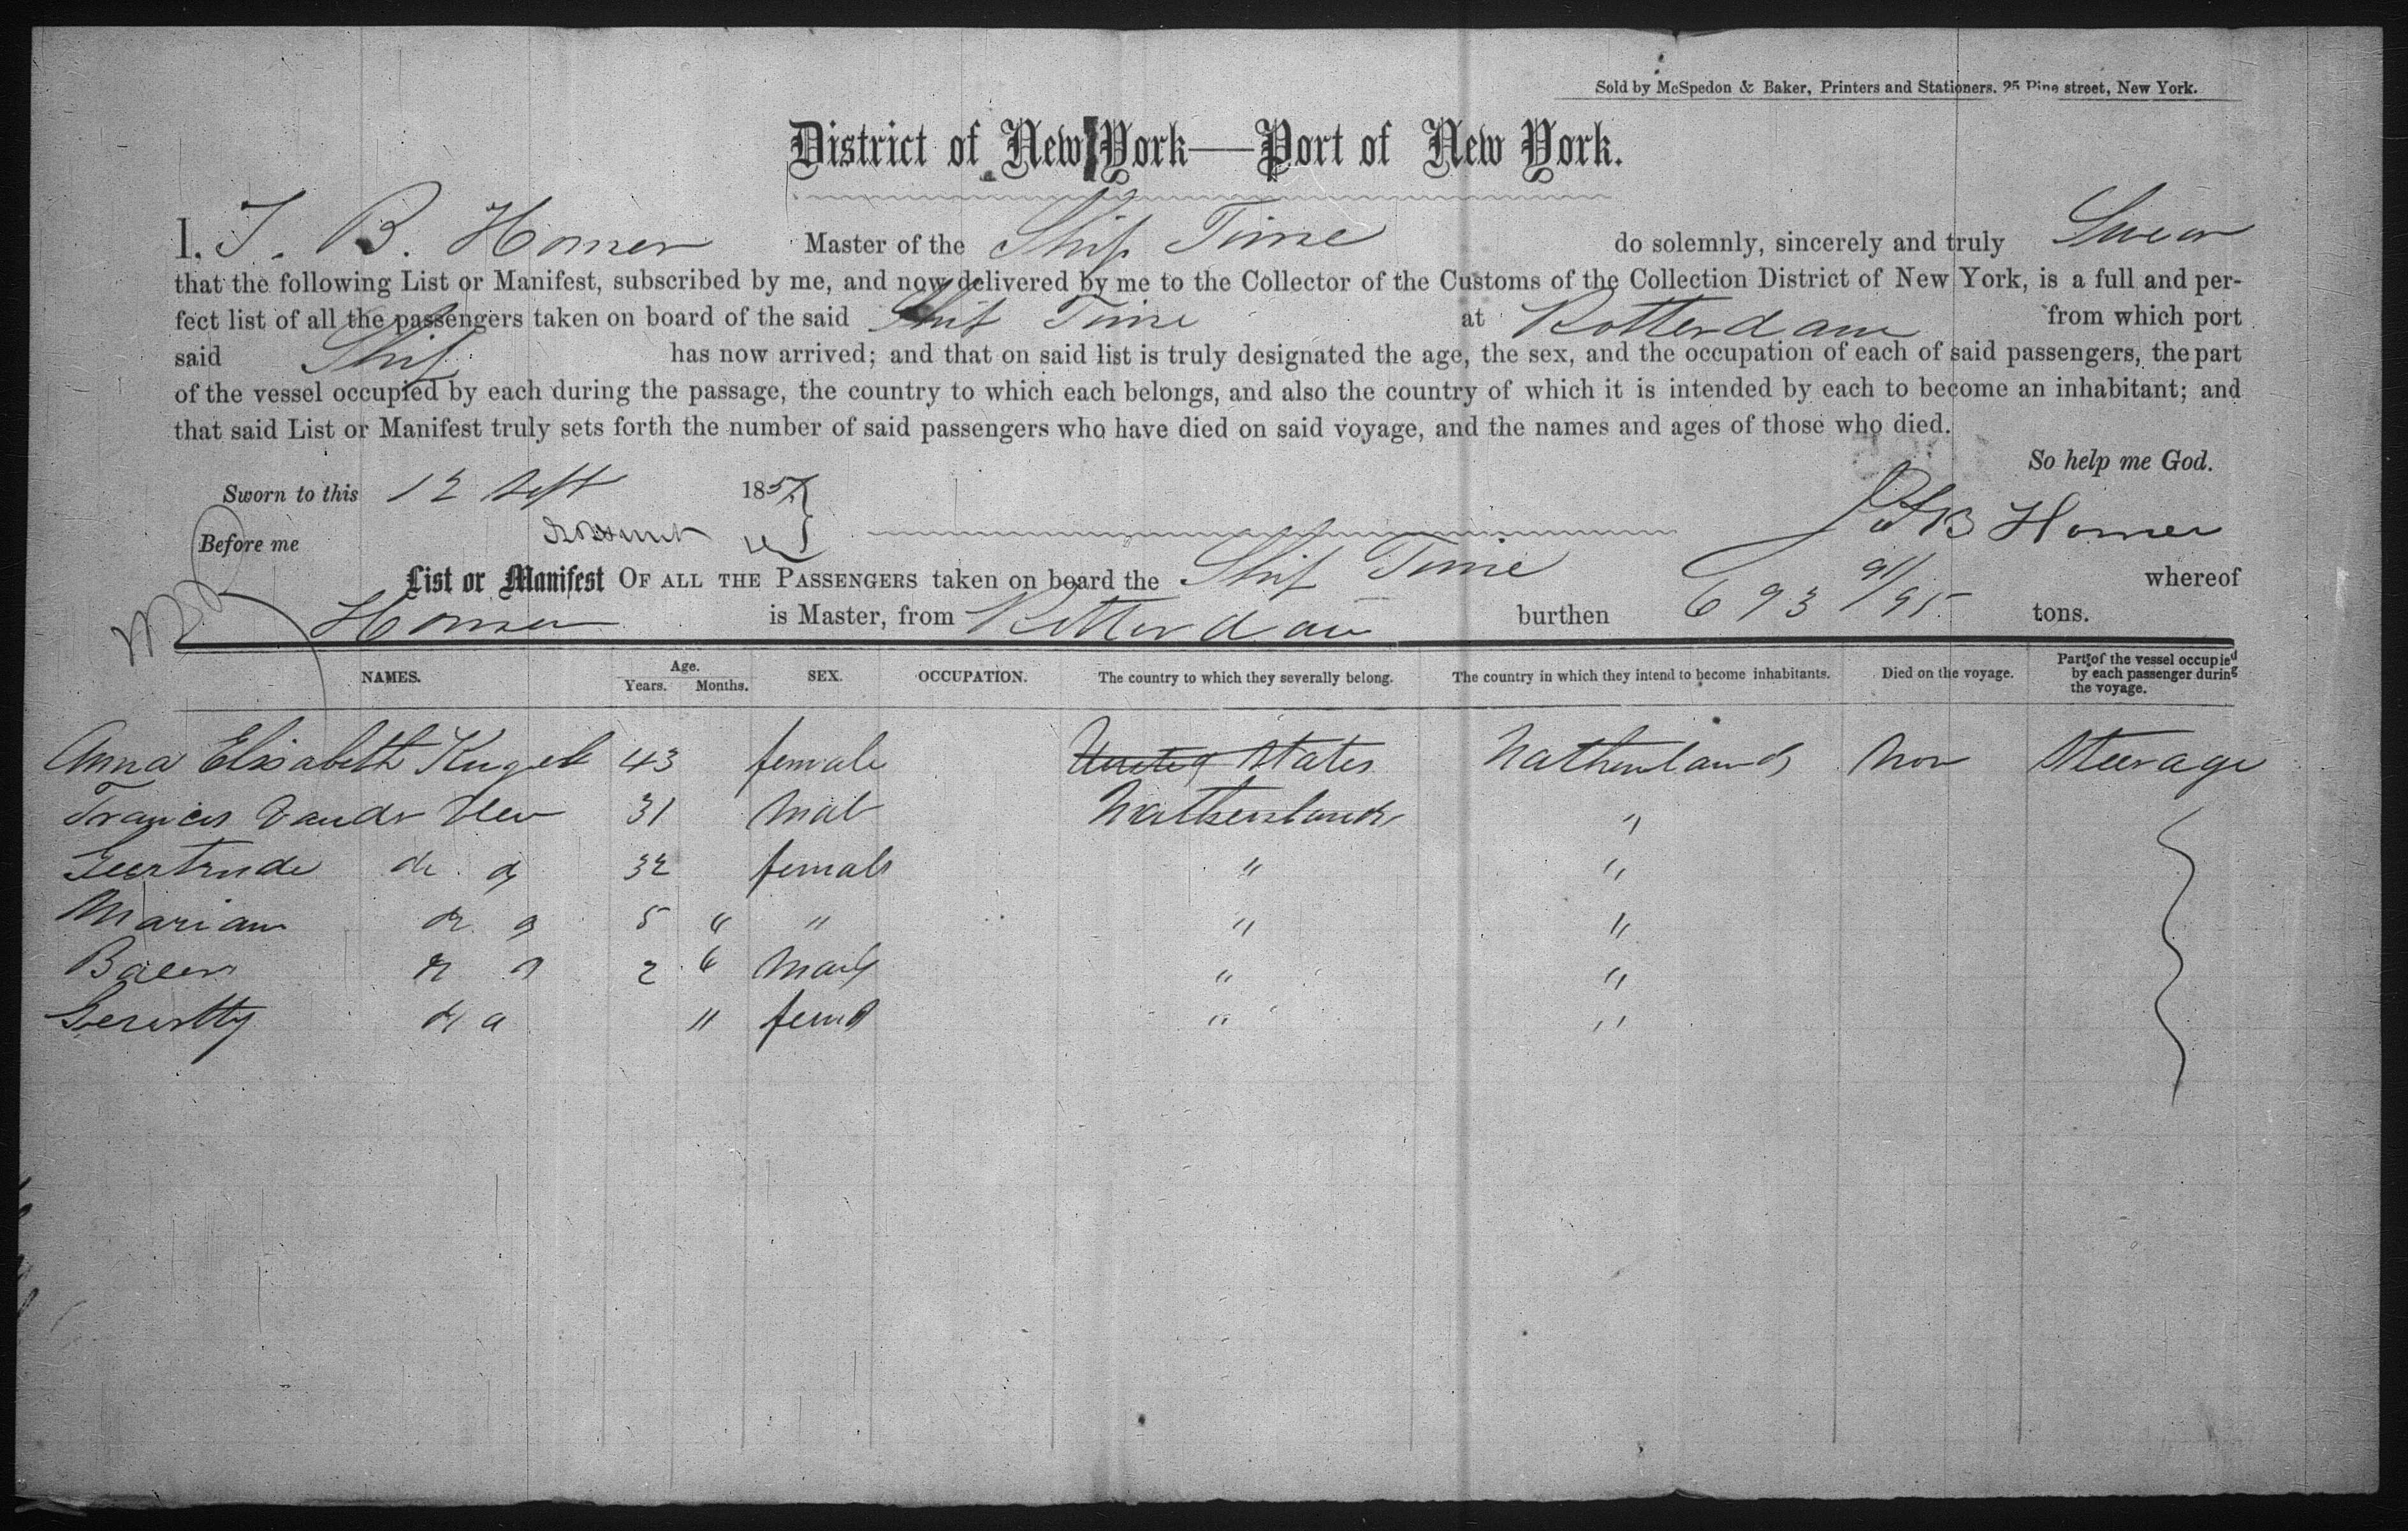 Sold by McSpedon & Baker, Printers and Stationers, 25 Pine street, New York.
District of New York—Port of New York.
I, J. B. Homer Master of the Ship Time do solemnly, sincerely and truly Swear
that the following List or Manifest, subscribed by me, and now delivered by me to the Collector of the Customs of the Collection District of New York, is a full and per-
fect list of all the passengers taken on board of the said Ship Time at Rotterdam from which port
said Ship has now arrived; and that on said list is truly designated the age, the sex, and the occupation of each of said passengers, the part
of the vessel occupied by each during the passage, the country to which each belongs, and also the country of which it is intended by each to become an inhabitant; and
that said List or Manifest truly sets forth the number of said passengers who have died on said voyage, and the names and ages of those who died.
So help me God.
Sworn to this 12 Sept 1857
J B Homer
Before me
List or Manifest OF ALL THE PASSENGERS taken on board the Ship Time whereof
Homer is Master, from Rotterdam burthen 693 91/95 tons.
NAMES. Age. Years. Months. SEX. OCCUPATION. The country to which they severally belong. The country in which they intend to become inhabitants. Died on the voyage. Part of the vessel occupied by each passenger during the voyage.
Anna Elisabeth 43 female United States Netherlands Steerage
Francis 31 Male Netherlands "
Geertrude do 32 female " "
Mariam do 5 " " " "
do 2 6 Male " "
do " " "